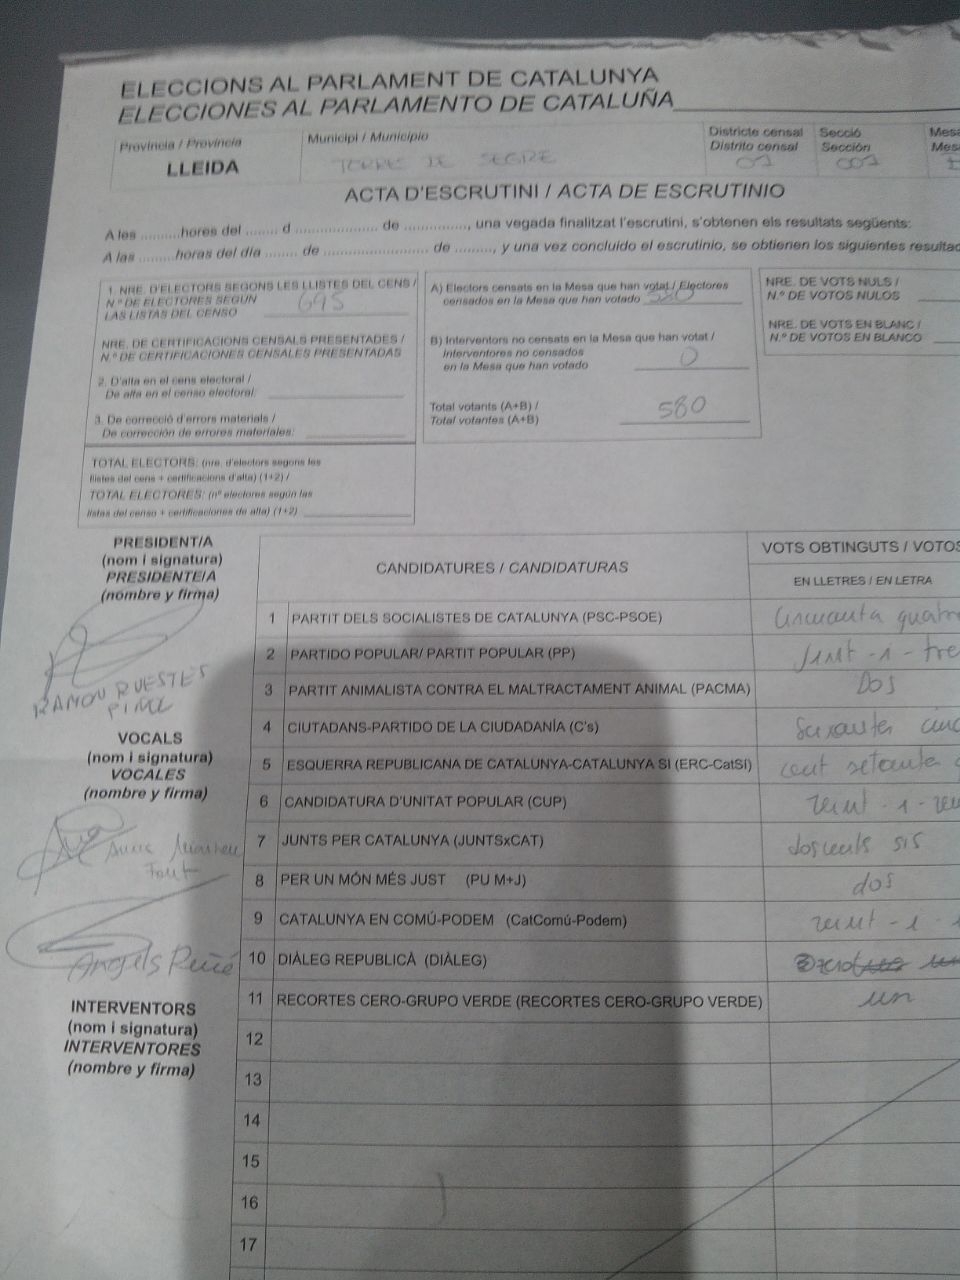 ELECCIONS AL PARLAMENT DE CATALUNYA
ELECCIONES AL PARLAMENTO DE CATALUÑA
Província / Provincia
LLEIDA
Municipi / Municipio
TORRES DE SEGRE
Districte censal
Distrito censal
01
Secció
Sección
001
Mesa
Mesa
ACTA D'ESCRUTINI / ACTA DE ESCRUTINIO
A les ..........hores del ....... d ..................... de .............., una vegada finalitzat l'escrutini, s'obtenen els resultats següents:
A las .........horas del día ........ de .......................... de ........, y una vez concluido el escrutinio, se obtienen los siguientes
1. NRE. D'ELECTORS SEGONS LES LLISTES DEL CENS /
N.º DE ELECTORES SEGÚN
LAS LISTAS DEL CENSO
695
NRE. DE CERTIFICACIONS CENSALS PRESENTADES /
N.º DE CERTIFICACIONES CENSALES PRESENTADAS
2. D'alta en el cens electoral /
De alta en el censo electoral:
3. De correcció d'errors materials /
De corrección de errores materiales:
TOTAL ELECTORS: (nre. d'electors segons les
llistes del cens + certificacions d'alta) (1+2) /
TOTAL ELECTORES: (nº electores según las
listas del censo + certificaciones de alta) (1+2)
A) Electors censats en la Mesa que han votat / Electores
censados en la Mesa que han votado 580
B) Interventors no censats en la Mesa que han votat /
Interventores no censados
en la Mesa que han votado 0
Total votants (A+B) /
Total votantes (A+B) 580
NRE. DE VOTS NULS /
N.º DE VOTOS NULOS
NRE. DE VOTS EN BLANC /
N.º DE VOTOS EN BLANCO
PRESIDENT/A
(nom i signatura)
PRESIDENTE/A
(nombre y firma)
RAMON RUESTES
PIÑOL
VOCALS
(nom i signatura)
VOCALES
(nombre y firma)
Anna
Font
Angels Peñé
INTERVENTORS
(nom i signatura)
INTERVENTORES
(nombre y firma)
CANDIDATURES / CANDIDATURAS
VOTS OBTINGUTS / VOTOS
EN LLETRES / EN LETRA
1 PARTIT DELS SOCIALISTES DE CATALUNYA (PSC-PSOE) cincuanta
2 PARTIDO POPULAR/ PARTIT POPULAR (PP) vint-i-
3 PARTIT ANIMALISTA CONTRA EL MALTRACTAMENT ANIMAL (PACMA) Dos
4 CIUTADANS-PARTIDO DE LA CIUDADANÍA (C's)
5 ESQUERRA REPUBLICANA DE CATALUNYA-CATALUNYA SÍ (ERC-CatSí) cent setanta
6 CANDIDATURA D'UNITAT POPULAR (CUP) vint-i-
7 JUNTS PER CATALUNYA (JUNTSxCAT) doscents sis
8 PER UN MÓN MÉS JUST (PU M+J) dos
9 CATALUNYA EN COMÚ-PODEM (CatComú-Podem) vint-i-
10 DIÀLEG REPUBLICÀ (DIÀLEG)
11 RECORTES CERO-GRUPO VERDE (RECORTES CERO-GRUPO VERDE) un
12
13
14
15
16
17